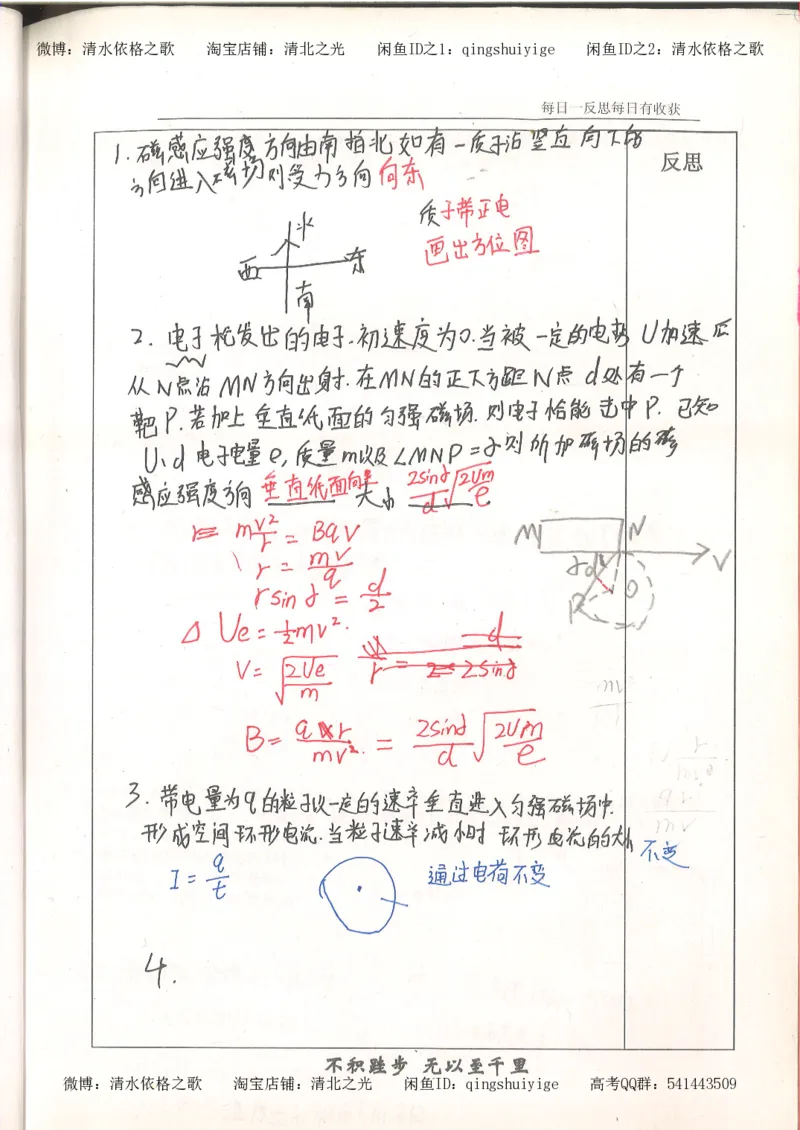 微博：清水依格之歌 淘宝店铺：清北之光 闲鱼ID之1：qingshuiyige 闲鱼ID之2：清水依格之歌
每日一反思每日有收获
反思
1. 磁感应强度方向由南指北如有一质子沿竖直向下的
方向进入磁场则受力方向 向东
质子带正电
画出方位图
北
西 东
南
2. 电子枪发出的电子.初速度为0.当被一定的电势U加速后
从N点沿MN方向出射.在MN的正下方距N点d处有一个
靶P.若加上垂直纸面的匀强磁场.则电子恰能击中P.已知
U、d电子电量e,质量m以及∠MNP=α则所加磁场的磁
感应强度方向 垂直纸面向里 大小 2sinα/d √(2Um/e)
M N
V
α d
O
P
mv²/r = BqV
r = mv/q
r sinα = d/2
△ Ue = ½mv².
V = √(2Ue/m)
B = = 2sinα/d √(2Um/e)
3. 带电量为q的粒子以一定的速率垂直进入匀强磁场中.
形成空间环形电流.当粒子速率减小时 环形电流的大小 不变
I = q/t
通过电荷不变
4.
不积跬步 无以至千里
微博：清水依格之歌 淘宝店铺：清北之光 闲鱼ID：qingshuiyige 高考QQ群：541443509